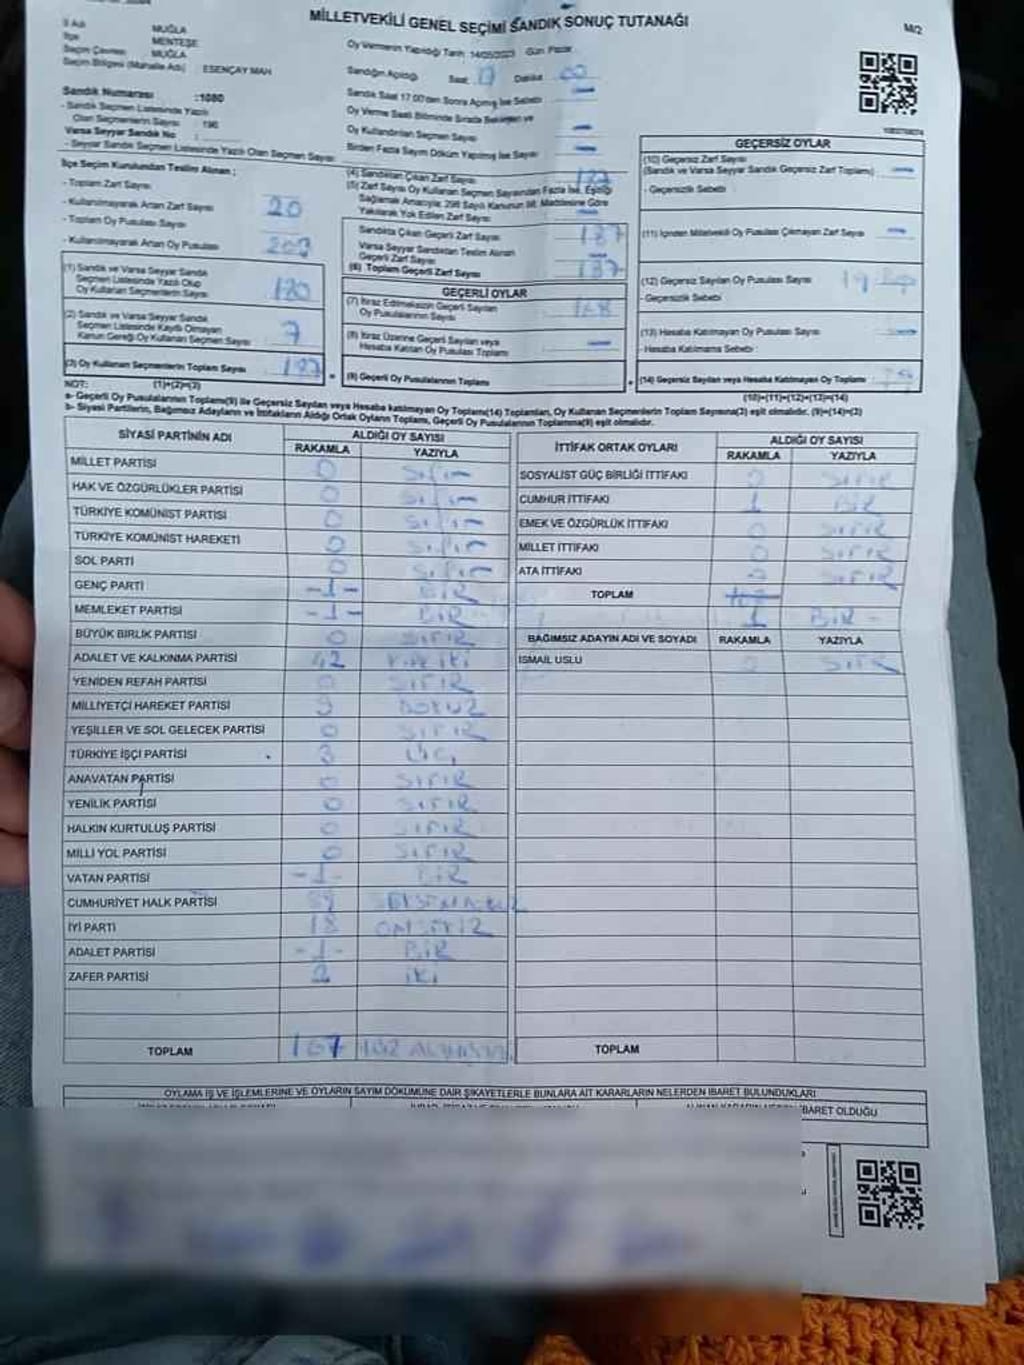 MİLLETVEKİLİ GENEL SEÇİMİ SANDIK SONUÇ TUTANAĞI
M/2
İl Adı MUĞLA
İlçe MENTEŞE
Seçim Çevresi MUĞLA
Seçim Bölgesi (Mahalle Adı) ESENÇAY MAH
Oy Vermenin Yapıldığı Tarih 14/05/2023 Gün Pazar
Sandığın Açıldığı Saat 17 Dakika 00
Sandık Numarası :1080
- Sandık Seçmen Listesinde Yazılı
Olan Seçmenlerin Sayısı 196
Varsa Seyyar Sandık No :
- Seyyar Sandık Seçmen Listesinde Yazılı Olan Seçmen Sayısı
Sandık Saat 17:00'den Sonra Açılmış İse Sebebi —
Oy Verme Saati Bitiminde Sırada Bekleyen ve
Oy Kullandırılan Seçmen Sayısı —
Birden Fazla Sayım Döküm Yapılmış İse Sayısı —
İlçe Seçim Kurulundan Teslim Alınan ;
- Toplam Zarf Sayısı
- Kullanılmayarak Artan Zarf Sayısı 20
- Toplam Oy Pusulası Sayısı
- Kullanılmayarak Artan Oy Pusulası
(1) Sandık ve Varsa Seyyar Sandık
Seçmen Listesinde Yazılı Olup
Oy Kullanan Seçmenlerin Sayısı 180
(2) Sandık ve Varsa Seyyar Sandık
Seçmen Listesinde Kayıtlı Olmayan
Kanun Gereği Oy Kullanan Seçmen Sayısı 7
(3) Oy Kullanan Seçmenlerin Toplam Sayısı 187
NOT: (1)+(2)=(3)
(4) Sandıktan Çıkan Zarf Sayısı 187
(5) Zarf Sayısı Oy Kullanan Seçmen Sayısından Fazla İse, Eşitliği
Sağlamak Amacıyla, 298 Sayılı Kanunun 98. Maddesine Göre
Yakılarak Yok Edilen Zarf Sayısı —
Sandıkta Çıkan Geçerli Zarf Sayısı 187
Varsa Seyyar Sandıktan Teslim Alınan
Geçerli Zarf Sayısı —
(6) Toplam Geçerli Zarf Sayısı 187
GEÇERLİ OYLAR
(7) İtiraz Edilmeksizin Geçerli Sayılan
Oy Pusulalarının Sayısı 168
(8) İtiraz Üzerine Geçerli Sayılan veya
Hesaba Katılan Oy Pusulası Toplamı —
(9) Geçerli Oy Pusulalarının Toplamı
GEÇERSİZ OYLAR
(10) Geçersiz Zarf Sayısı
(Sandık ve Varsa Seyyar Sandık Geçersiz Zarf Toplamı) —
- Geçersizlik Sebebi
(11) İçinden Milletvekili Oy Pusulası Çıkmayan Zarf Sayısı —
(12) Geçersiz Sayılan Oy Pusulası Sayısı 19
- Geçersizlik Sebebi
(13) Hesaba Katılmayan Oy Pusulası Sayısı —
- Hesaba Katılmama Sebebi
(14) Geçersiz Sayılan veya Hesaba Katılmayan Oy Toplamı
(10)+(11)+(12)+(13)=(14)
a- Geçerli Oy Pusulalarının Toplamı(9) ile Geçersiz Sayılan veya Hesaba katılmayan Oy Toplamı(14) Toplamları, Oy Kullanan Seçmenlerin Toplam Sayısına(3) eşit olmalıdır. (9)+(14)=(3)
b- Siyasi Partilerin, Bağımsız Adayların ve İttifakların Aldığı Ortak Oyların Toplamı, Geçerli Oy Pusulalarının Toplamına(9) eşit olmalıdır.
SİYASİ PARTİNİN ADI ALDIĞI OY SAYISI
RAKAMLA YAZIYLA
MİLLET PARTİSİ 0 Sıfır
HAK VE ÖZGÜRLÜKLER PARTİSİ 0 Sıfır
TÜRKİYE KOMÜNİST PARTİSİ 0 Sıfır
TÜRKİYE KOMÜNİST HAREKETİ 0 Sıfır
SOL PARTİ 0 Sıfır
GENÇ PARTİ -1- BİR
MEMLEKET PARTİSİ -1- BİR
BÜYÜK BİRLİK PARTİSİ 0 SIFIR
ADALET VE KALKINMA PARTİSİ 42 KIRK İKİ
YENİDEN REFAH PARTİSİ 0 SIFIR
MİLLİYETÇİ HAREKET PARTİSİ 9 DOKUZ
YEŞİLLER VE SOL GELECEK PARTİSİ 0 SIFIR
TÜRKİYE İŞÇİ PARTİSİ 3 ÜÇ
ANAVATAN PARTİSİ 0 SIFIR
YENİLİK PARTİSİ 0 SIFIR
HALKIN KURTULUŞ PARTİSİ 0 SIFIR
MİLLİ YOL PARTİSİ 0 SIFIR
VATAN PARTİSİ -1- BİR
CUMHURİYET HALK PARTİSİ 89
İYİ PARTİ 18 ONSEKİZ
ADALET PARTİSİ -1- BİR
ZAFER PARTİSİ 2 İKİ
TOPLAM 167
İTTİFAK ORTAK OYLARI ALDIĞI OY SAYISI
RAKAMLA YAZIYLA
SOSYALİST GÜÇ BİRLİĞİ İTTİFAKI 0 SIFIR
CUMHUR İTTİFAKI 1 BİR
EMEK VE ÖZGÜRLÜK İTTİFAKI 0 SIFIR
MİLLET İTTİFAKI 0 SIFIR
ATA İTTİFAKI 0 SIFIR
TOPLAM
1 BİR -
BAĞIMSIZ ADAYIN ADI VE SOYADI RAKAMLA YAZIYLA
İSMAİL USLU 0 SIFIR
TOPLAM
OYLAMA İŞ VE İŞLEMLERİNE VE OYLARIN SAYIM DÖKÜMÜNE DAİR ŞİKAYETLERLE BUNLARA AİT KARARLARIN NELERDEN İBARET BULUNDUKLARI
İBARET OLDUĞU